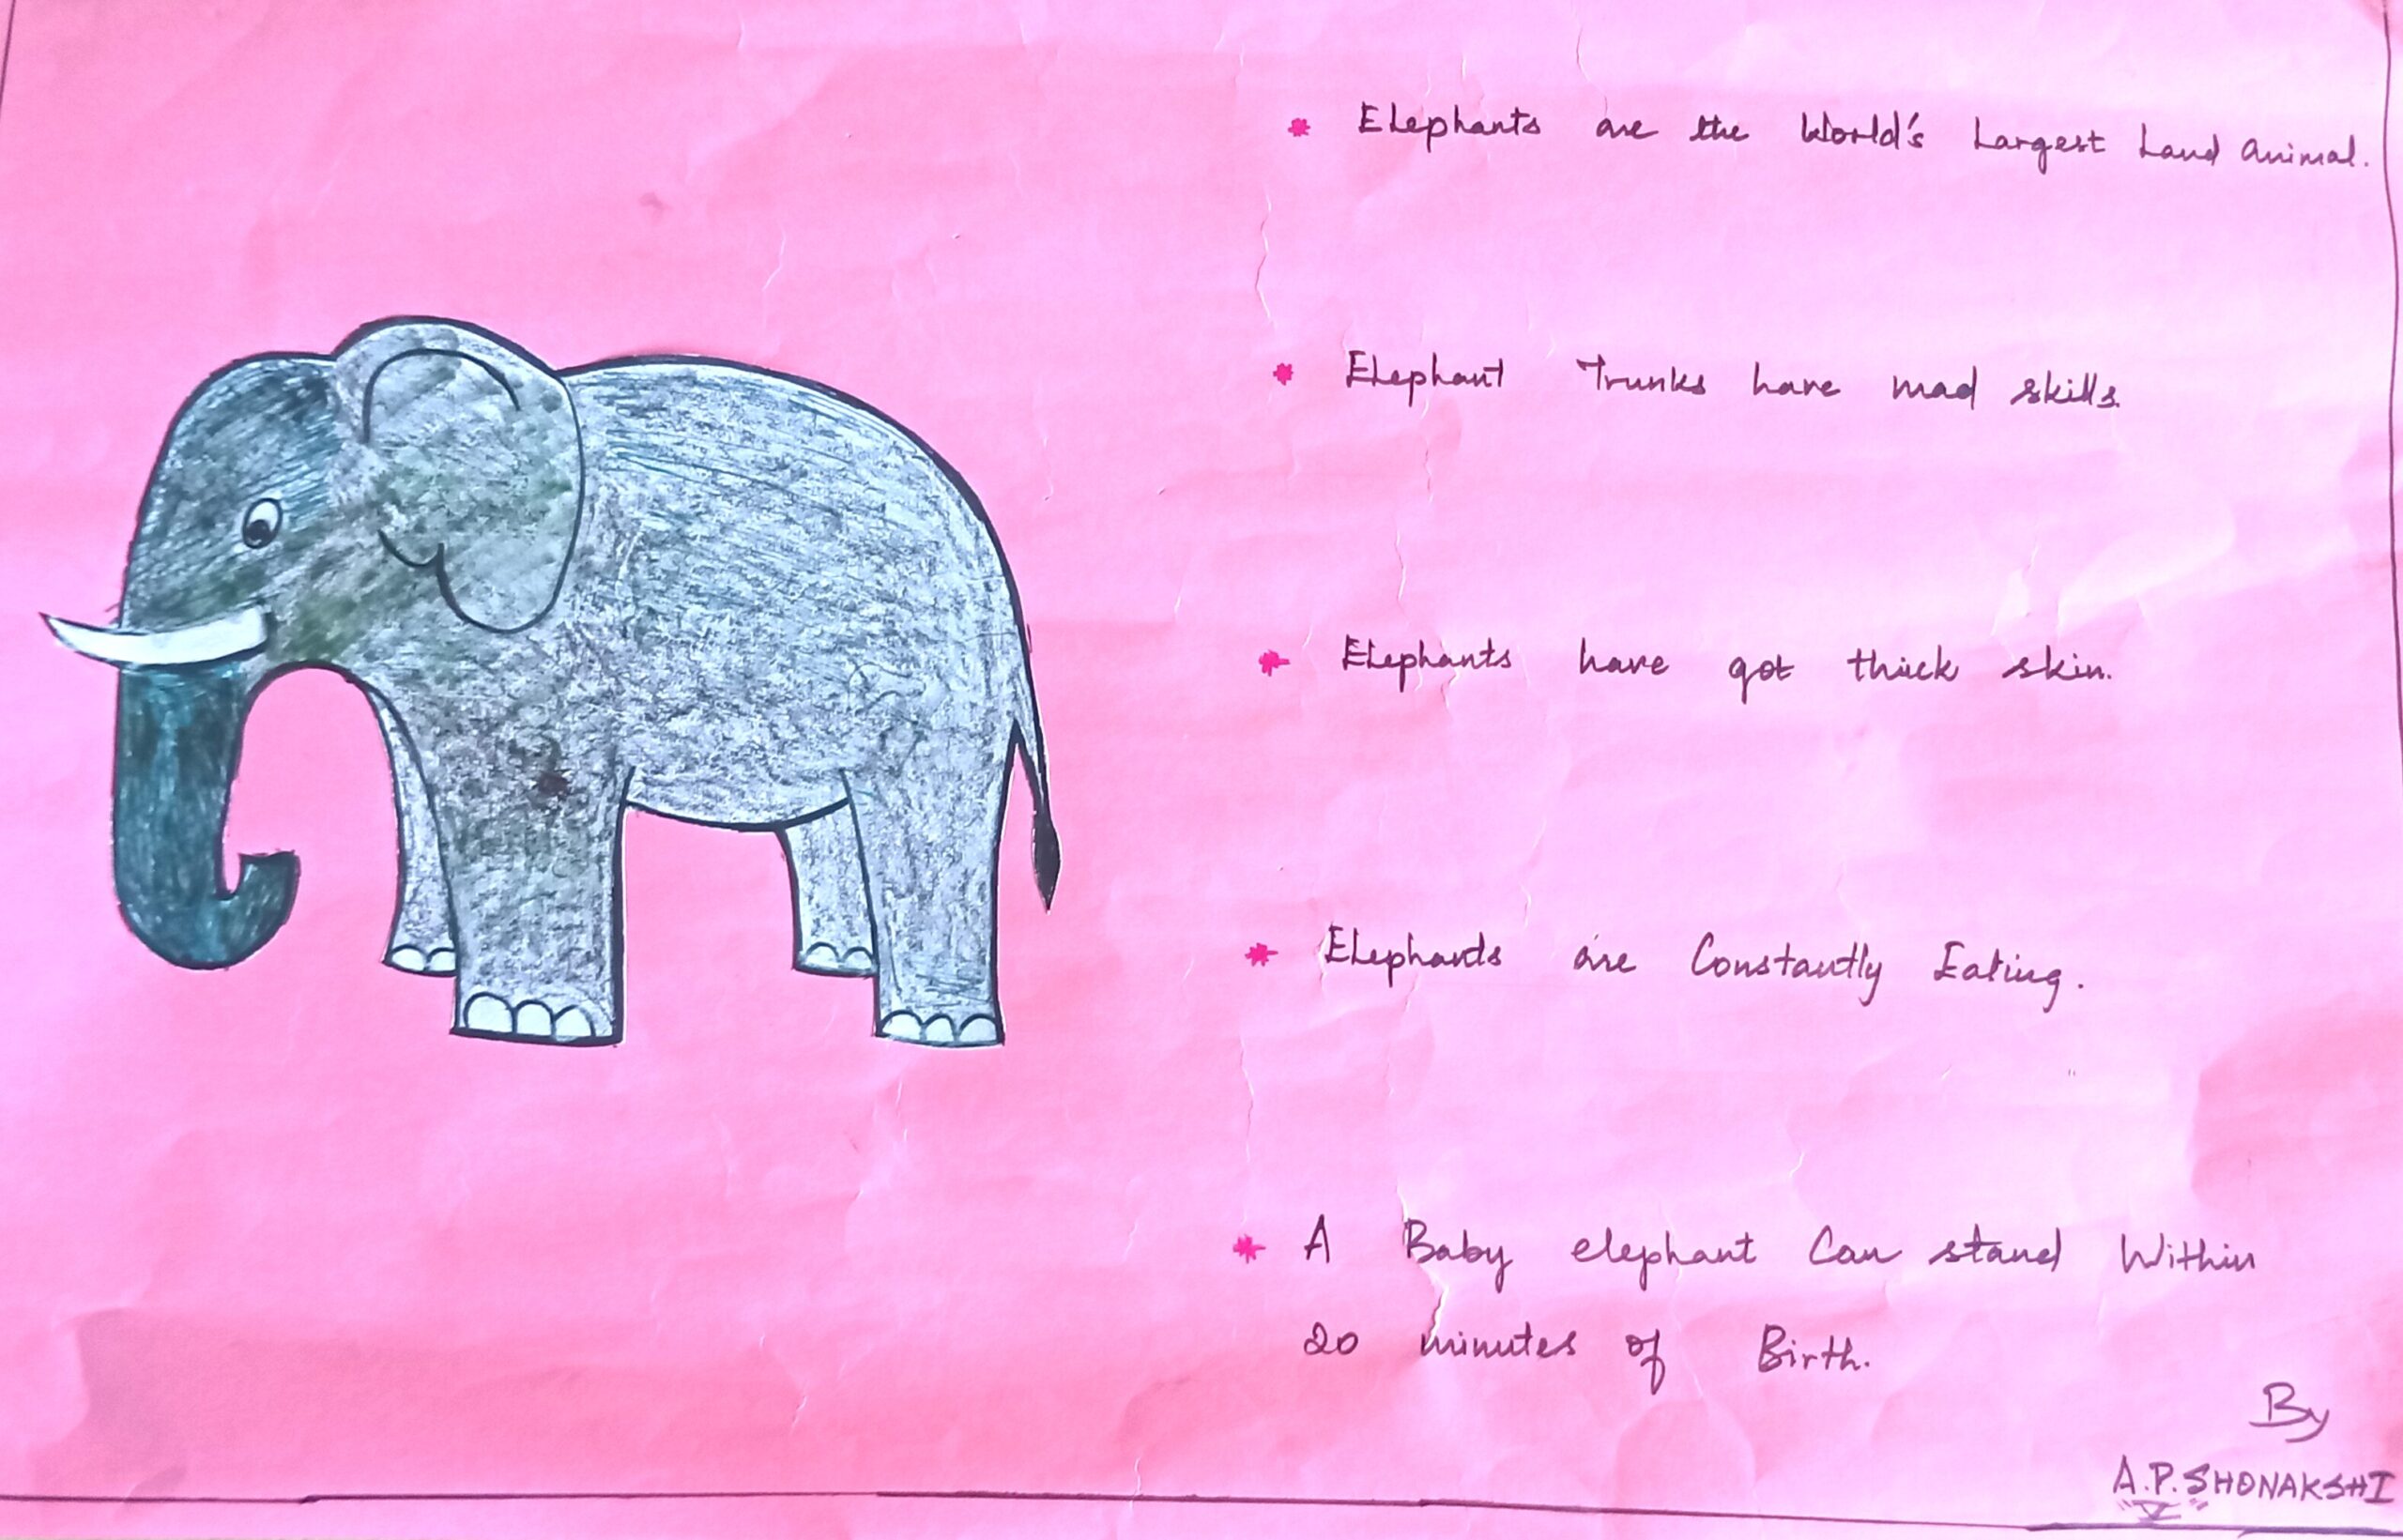 * Elephants are the World's Largest Land animal.
* Elephant Trunks have mad skills.
* Elephants have got thick skin.
* Elephants are Constantly Eating.
* A Baby elephant Can stand Within
20 minutes of Birth.
By
A.P.SHONAKSHI
"V"